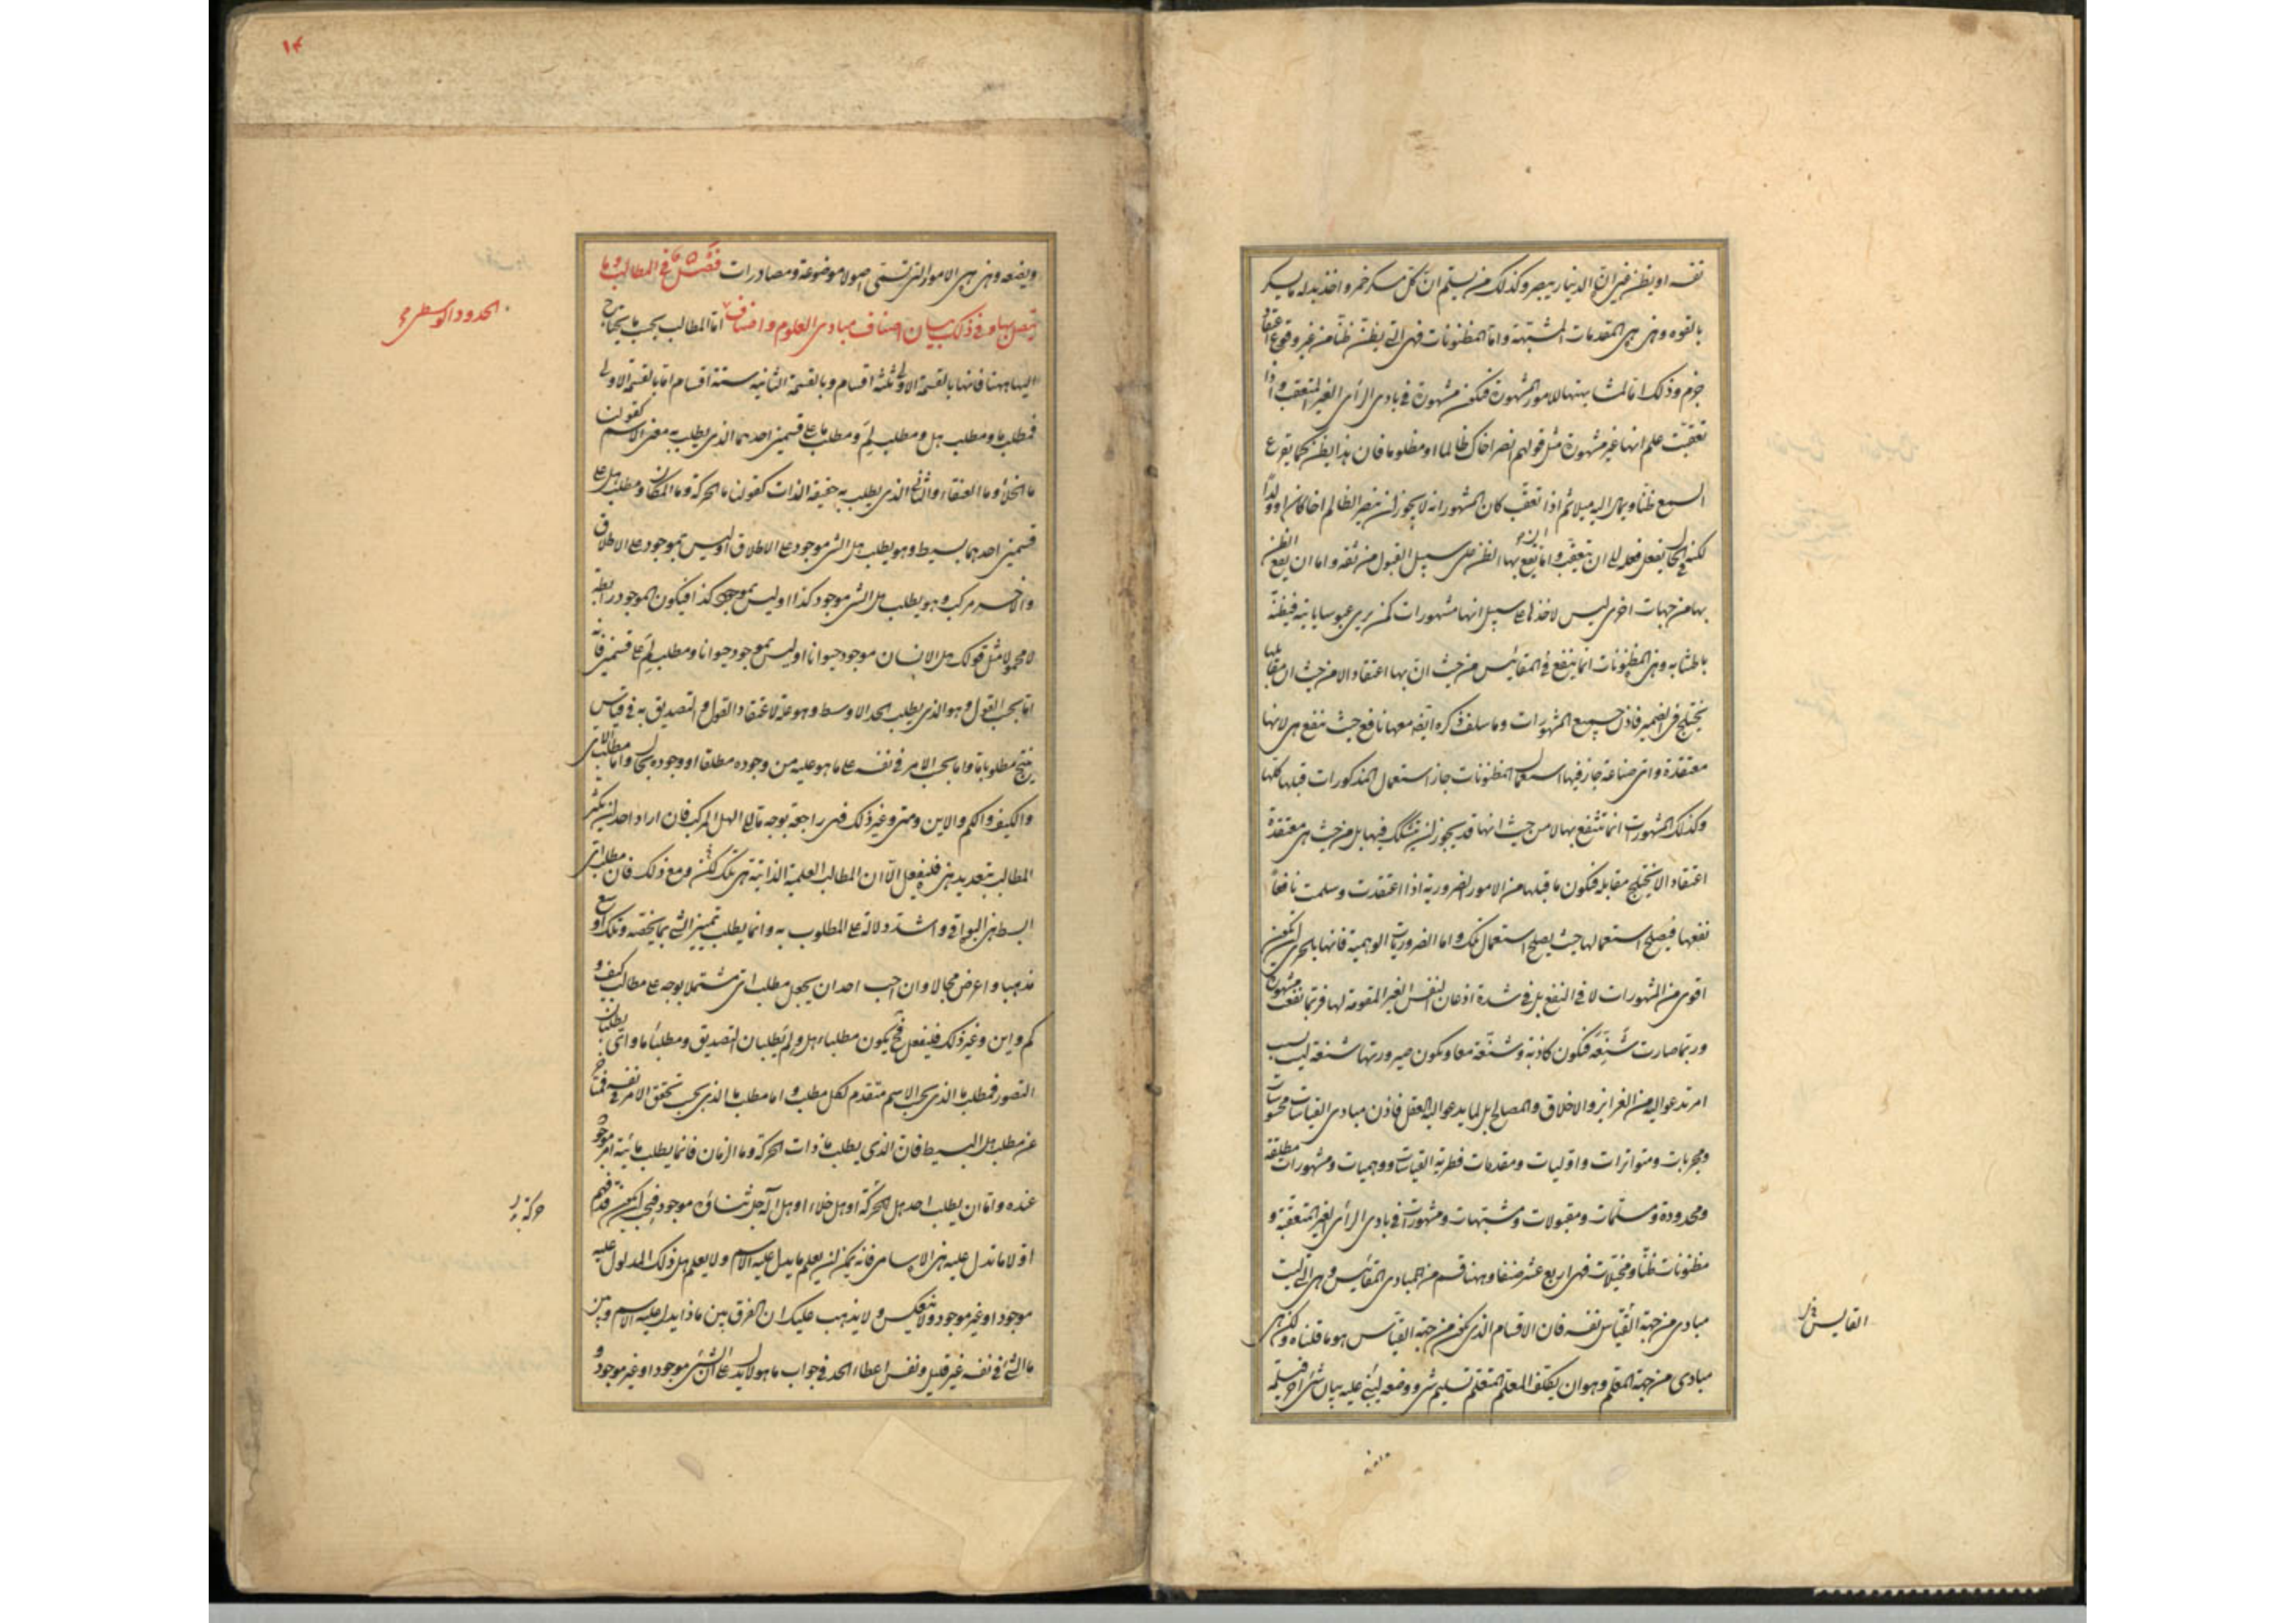 نفسه او يظن خيرا ان الدينار يبصر وكذلك من يسلم ان كل مسكر خمر واخذ بدله ما يسكر
بالقوه وهذه هى المقدمات المشبهة واما المظنونات فهى التى يظن ظنا من غير وقوع اعتقاد
جزم وذلك اما لمشابهتها للامور المشهورة فتكون مشهورة فى بادى الرأى الغير المتعقب واذا
تعقبت علم انها غير مشهورة مثل قولهم انصر اخاك ظالما او مظلوما فان هذا يظن كما يقرع
السمع ظنا ويمال اليه ميلا ثم اذا تعقب كان المشهور انه لا يجوز ان ينصر الظالم اخا كان او ولدا
لكنه فى الحال يفعل فعله الى ان يتعقب واما ان يقع بها الظن على سبيل القبول من ثقه واما ان يقع الظن
بها من جهات اخرى ليس لاخذها على سبيل انها مشهورات كمن يرى عبوسا ياتيه فيظنه
باطشا به وهذه المظنونات انما ينتفع فى المقائيس من حيث ان بها اعتقادا لا من حيث ان مقابلها
يختلج فى الضمير فاذن جميع المشهورات وما سلف ذكره ايضا معها نافع حيث تنفع هى لانها
معتقدة واى صناعة جاز فيها استعمال المظنونات جاز استعمال المذكورات قبلها كلها
وكذلك المشهورات انما تنتفع بها لا من حيث انها قد يجوز ان يتشكك فيها بل من حيث هى معتقدة
اعتقادا لا يختلج مقابله فتكون ما قبلها من الامور الضرورية اذا اعتقدت وسلمت نافعا
نفعها فيصلح استعمالها حيث يصلح استعمال تلك واما الضروريات الوهمية فانها بالحرى ان تكون
اقوى من المشهورات لا فى النفع بل فى شدة اذعان النفس الغير المقومة لها فربما نفعت مشهورة
وربما صارت شنعة فتكون كاذبة وشنعة معا ويكون صيرورتها شنعة ليس بسبب
امر تدعو اليه من الغرائز والاخلاق والمصالح بل لما يدعو اليه العقل فاذن مبادى القياسات محسوسات
ومجربات ومتواترات واوليات ومقدمات فطرية القياسات ووهميات ومشهورات مطلقة
ومحدودة ومسلمات ومقبولات ومشبهات ومشهورات فى بادى الرأى الغير المتعقبة و
مظنونات ظنا ومخيلات فهى اربع عشر صنفا وههنا قسم من المبادى المقائيس وهى التى ليست
مبادى من جهة القياس نفسه فان الاقسام الذى تكون من جهة القياس هو ما قلناه ولكن هى
مبادى من جهة المعلم وهو ان يكلف المعلم المتعلم تسليم شى ووضعه ليبنى عليه بيان شى اخر فيسلمه
المقاييس
١٤
ويضعه وهذه هى الامور التى تسمى اصولا موضوعة ومصادرات فصل فى المطالب وما
يتصل بها وفى ذلك بيان اصناف مبادى العلوم واصناف اما المطالب بحسب ما يحتاج
اليها ههنا فانها بالقسمة الاولى ثلثه اقسام وبالقسمة الثانيه ستة اقسام اما بالقسمة الاولى
فمطلب ما ومطلب هل ومطلب لم ومطلب ما على قسمين احدهما الذى يطلب به معنى الاسم كقولنا
ما الخلأ وما العنقاء والثانى الذى يطلب به حقيقة الذات كقولنا ما الحركة وما المكان ومطلب هل على
قسمين احدهما بسيط وهو يطلب هل الشى موجود على الاطلاق او ليس بموجود على الاطلاق
والاخر مركب وهو يطلب هل الشى موجود كذا او ليس بموجود كذا فيكون الموجود رابطه
لا محمولا مثل قولك هل الانسان موجود حيوانا او ليس بموجود حيوانا ومطلب لم على قسمين فانه
اما بحسب القول وهو الذى يطلب الحد الاوسط وهو علة لاعتقاد القول والتصديق به فى قياس
ينتج مطلوبا ما واما بحسب الامر فى نفسه على ما هو عليه من وجوده مطلقا او وجوده بحال واما مطلب الاى
والكيف والكم والاين ومتى وغير ذلك فهى راجعة بوجه ما الى الهل المركب فان اراد احد ان يكثر
المطالب بتعديد هذه فليفعل الا ان المطالب العلمية الذاتية هى تلك لكن ومع ذلك فان مطلب اى
ابسط هذه البواقى واشد دلاله على المطلوب به وانما يطلب تمييز الشى بما يخصه وتلك اوسع
مذهبا واعرض مجالا وان احب احد ان يجعل مطلب اى مشتملا بوجه على مطالب كيف و
كم واين وغير ذلك فليفعل فح يكون مطلبا هل ولم يطلبان التصديق ومطلبا ما واى يطلبان
التصور فمطلب ما الذى بحسب الاسم متقدم لكل مطلب واما مطلب ما الذى بحسب تحقق الامر فى نفسه فمتاخر
عن مطلب هل البسيط فان الذى يطلب ما ذات الحركة وما الزمان فانما يطلب مائية امر موجود
عنده واما ان يطلب احد هل الحركة او هل خلاء او هل اله جل ثناؤه موجود فيجب ان يكون قد فهم
اولا ما تدل عليه هذه الاسامى فانه يمكن ان يعلم ما يدل عليه الاسم ولا يعلم هل ذلك المدلول عليه
موجود او غير موجود ولا ينعكس ولا يذهب عليك ان الفرق بين ماذا يدل عليه الاسم وبين
ما الشى فى نفسه غير قليل ونفس اعطاء الحد فى جواب ما هو لا يدل على ان الشى موجود او غير موجود و
الحدود الوسطى
حركة